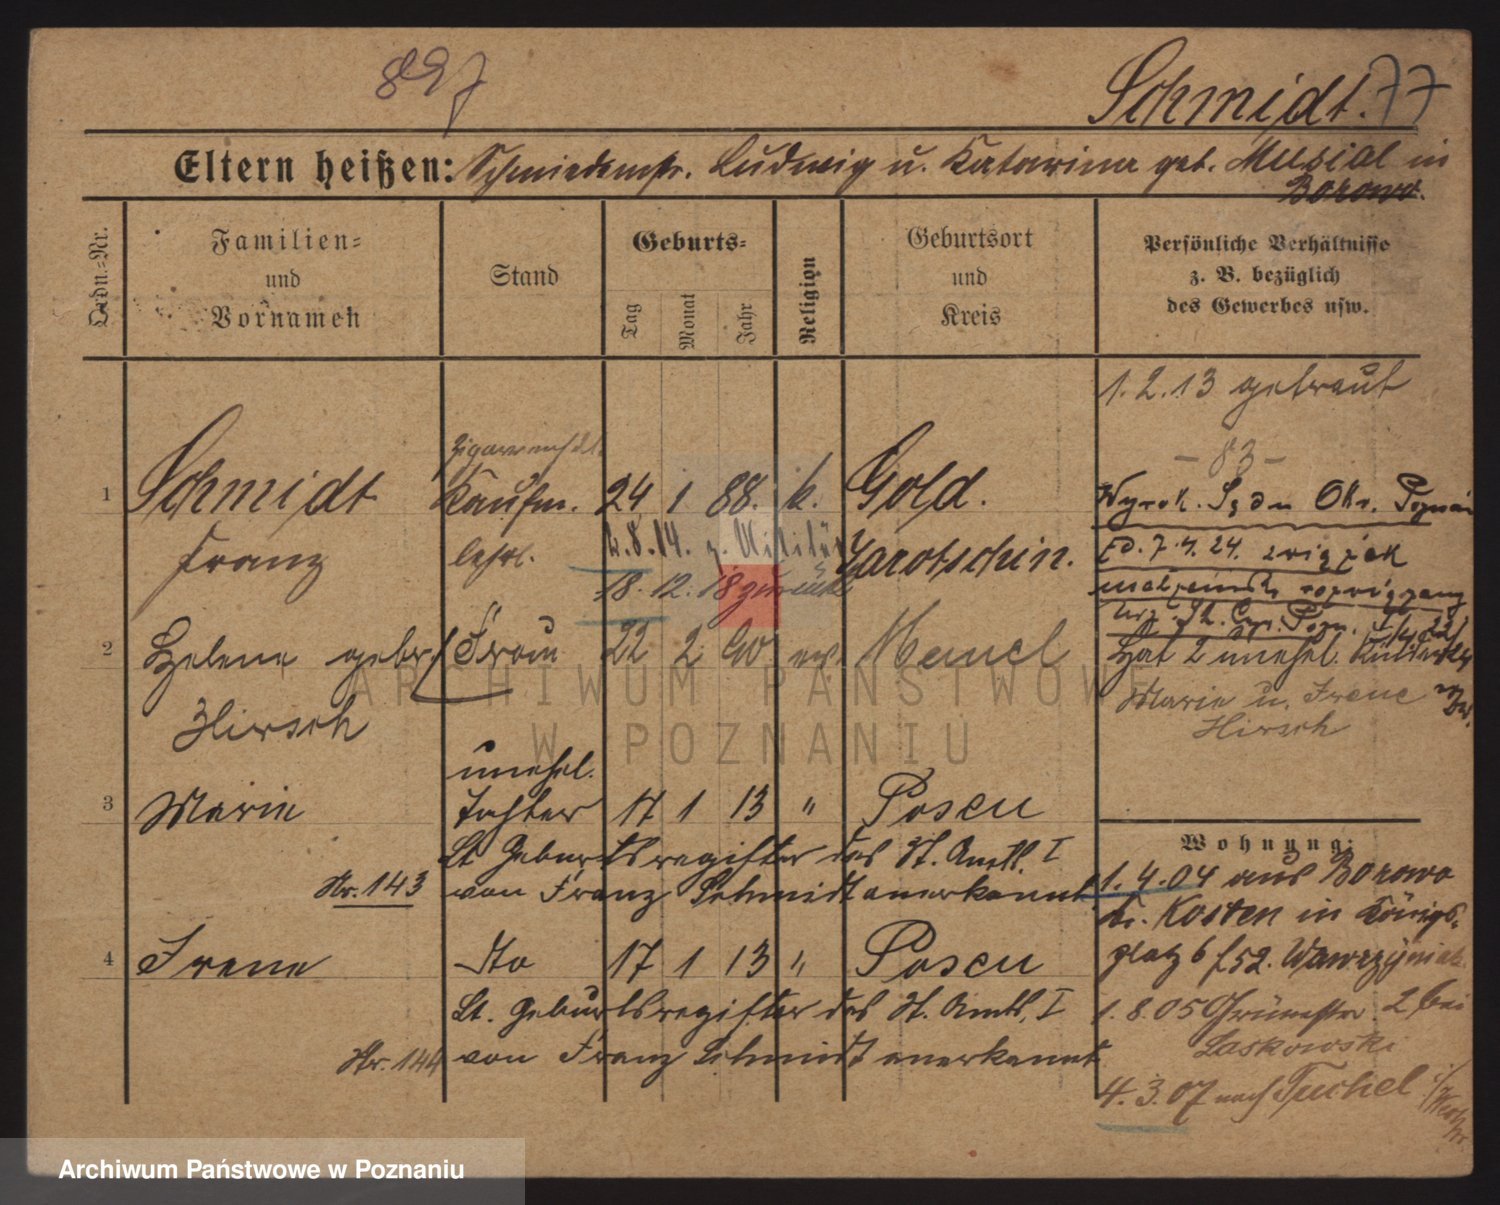 897
Schmidt. 77
Eltern heißen: Schmiedemstr. Ludwig u. Katarina geb. Musial in
Borowo.
Ordn.-Nr.
Familien-
und
Vornamen
Stand
Geburts-
Tag
Monat
Jahr
Religion
Geburtsort
und
Kreis
Persönliche Verhältnisse
z. B. bezüglich
des Gewerbes usw.
1.2.13 getraut
- 83 -
1 Schmidt Kaufm. 24 1 88. k. Gold.
Franz lehrl. Jarotschin.
2.8.14. z. Militär
18.12.18 zurück
Wyrok. Są du Okr. Poznań
z d. 7.4.24. związek
małżeński rozwiązany
2 Helene gebr. Frau 22 2 90 ev. Memel
Hirsch
Hat 2 unehel. Kinder
Marie u. Irene
Hirsch
unehel.
3 Marie Tochter 17 1 13 " Posen
Lt. Geburtsregister des St. Amts. I
Nr. 143 von Franz Schmidt anerkannt
4 Irene dto 17 1 13 " Posen
Lt. Geburtsregister des St. Amts. I
Nr. 144 von Franz Schmidt anerkannt
Wohnung:
1.4.04 aus Borowo
Kr. Kosten in Königs-
platz 6 f 52. Wawrzyniak
1.8.05 Grünestr. 2, bei
Laskowski
4.3.07 nach Tuchel
ARCHIWUM PAŃSTWOWE
W POZNANIU
Archiwum Państwowe w Poznaniu